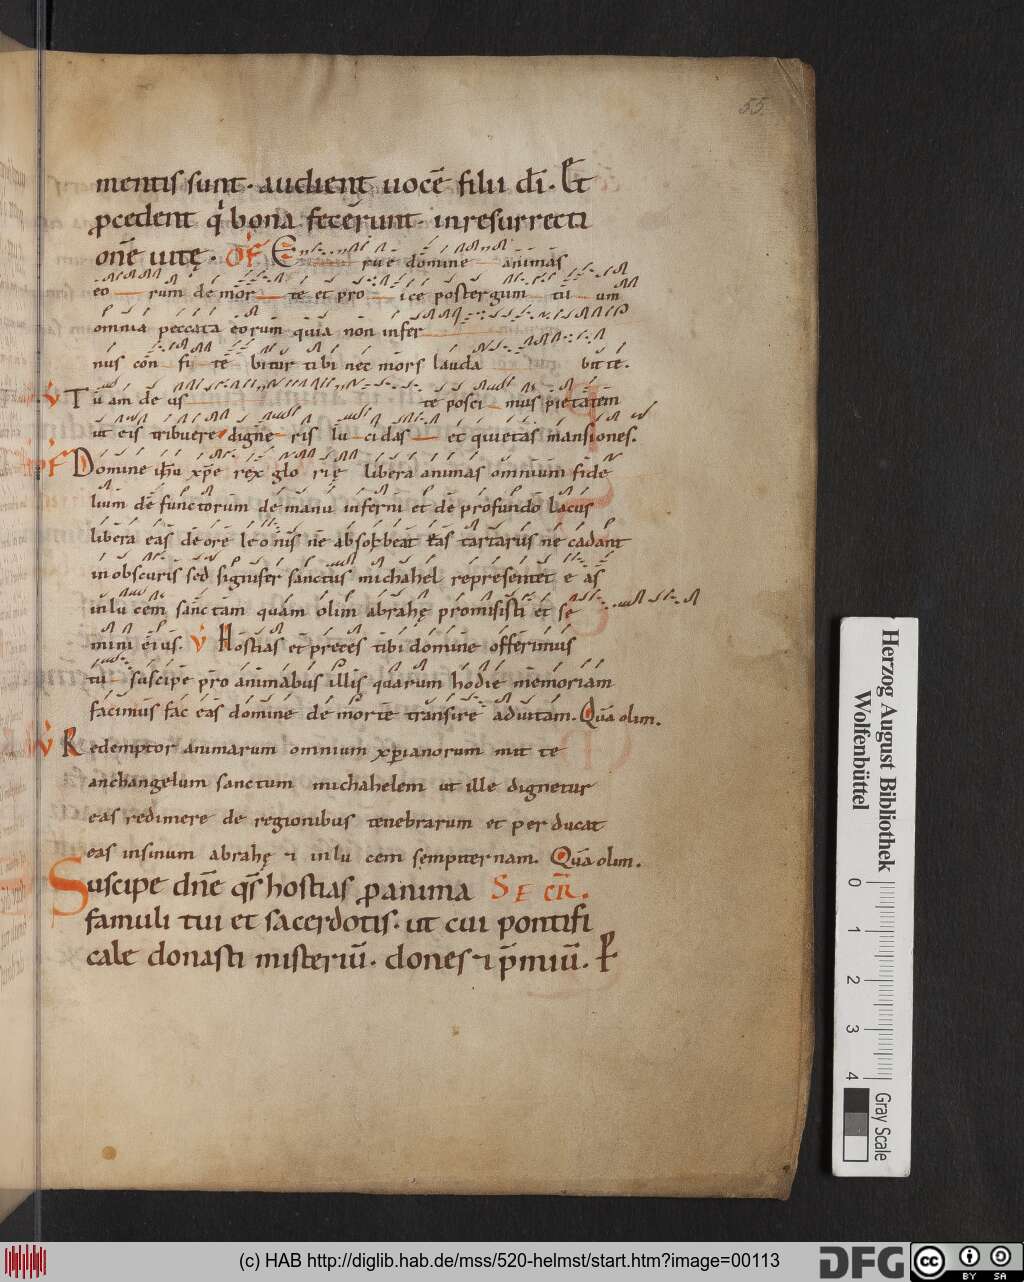 55
mentis sunt. audient uocē filii dī. Et
pcedent q bona fecerunt. in resurrecti
onē uitę. OF E rue domine animas
eo rum de mor te et pro ice post tergum tu um
omnia peccata eorum quia non infer
nus con fi te bitur tibi nec mors lauda bit te.
V Tu am de us te posci mus pietatem
ut eis tribuere digne ris lu cidas et quietas mansiones.
OF Domine ihū xpe rex glo rię libera animas omnium fide
lium de functorum de manu inferni et de profundo lacus
libera eas de ore leonis ne absorbeat eas tartarus ne cadant
in obscuris sed signifer sanctus michahel representet e as
in lu cem sanctam quam olim abrahę promisisti et se
mini eius. V Hostias et preces tibi domine offerimus
tu suscipe pro animabus illis quarum hodie memoriam
facimus fac eas domine de morte transire ad uitam. Quā olim.
V Redemptor animarum omnium xpianorum mit te
anchangelum sanctum michahelem ut ille dignetur
eas redimere de regionibus tenebrarum et per ducat
eas in sinum abrahę in lu cem sempiternam. Quā olim.
Suscipe dnē qs hostias p anima SECR.
famuli tui et sacerdotis. ut cui pontifi
cale donasti misteriū. dones pmiū. P
Herzog August Bibliothek
Wolfenbüttel
0 1 2 3 4
Gray Scale
(c) HAB http://diglib.hab.de/mss/520-helmst/start.htm?image=00113
DFG
cc BY SA